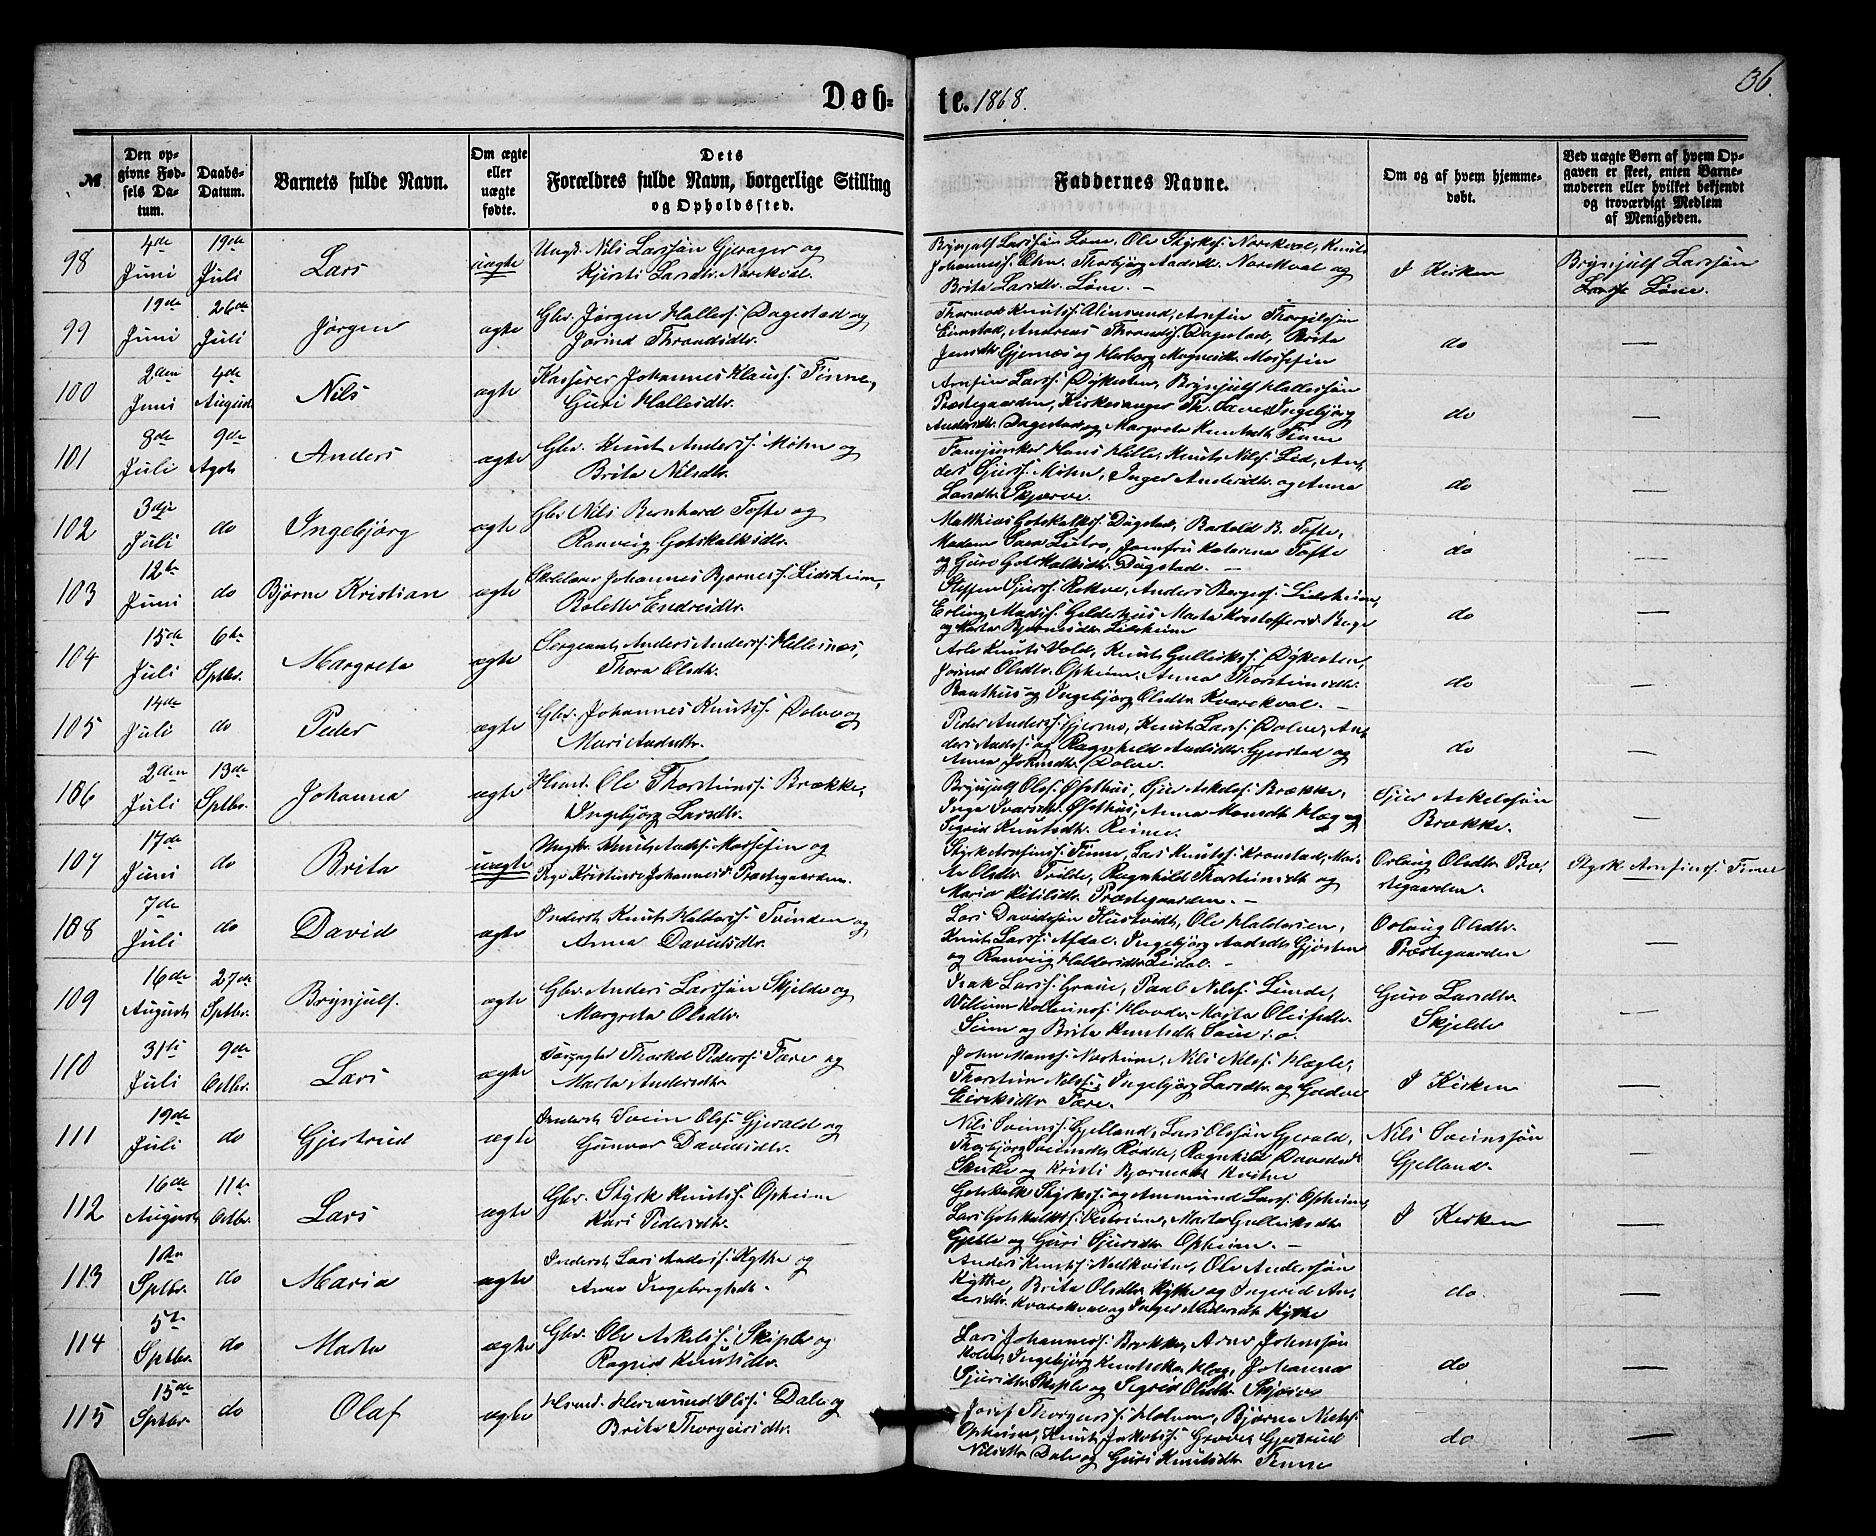 Døb- te. 1868.
36.
№
Den op-
givne Fød-
sels Da-
tum.
Daabs-
Datum.
Barnets fulde Navn.
Om ægte
eller
uægte
fødte.
Dets
Forældres fulde Navn, borgerlige Stilling
og Opholdssted.
Faddernes Navne.
Om og af hvem hjemme-
døbt.
Ved uægte Børn af hvem Op-
gaven er skeet, enten Barne-
moderen eller hvilket bekjendt
og troværdigt Medlem
af Menigheden.
98
4de
Juni
19de
Juli
Lars
uægte
Ungk. Nils Larssøn Gjerager og
Kjersti Larsdtr. Norekval.
Brynjulf Larssøn Løne, Ole Styrks. Norekval, Knut
Johanness. Thorbjørg Aadsdtr. Norekval og
Brita Larsdtr. Løne. —
I Kirken
Brynjulf Larssøn
Løne.
99
19de
Juni
26de
Juli
Jørgen
ægte
Gbr. Jørgen Halless. Dagestad og
Jorind Throndsdtr.
Thormod Knuts. Arnfin Thorgilssøn
Andreas Thronds. Dagestad, Brita
Jensdtr. Gjernæs og Herborg Magnesdtr. Mossefin
do
—
100
2den
Juni
4de
August
Nils
ægte
Kasserer Johannes Klaus. Finne,
Guri Hallesdtr.
Arnfin Larss. Dykesten, Brynjulf Hallessøn
Præstegaarden, Kirkesanger Th. Ingebjørg
Andersdtr. Dagestad og Margreta Knutsdtr. Finne
do
—
101
8de
Juli
9de
Agst.
Anders
ægte
Gbr. Knut Anderss. Møhn og
Brita Nilsdtr.
Fanejunker Hans Hille, Knut Nils. Lid, An-
ders Sjurs. Møhn, Inger Andersdtr. og Anna
Larsdtr. Skjerve.
do
—
102
3dje
Juli
do
Ingebjørg
ægte
Gbr. Nils Bernhard Tofte og
Ranveig Gotskalksdtr.
Matthias Gotskalks. Dagstad, Bartold B. Tofte,
Madam Sara Jomfru Katarina Tofte
og Guro Gotskalksdtr. Dagstad. —
do
—
103
12te
Juni
do
Bjørne Kristian
ægte
Skolelærer Johannes Bjørness. Lidsheim,
Bolette Endresdtr.
Steffen Sjurs. Rekve, Anders Børges. Lidsheim,
Erling Mads. Gelderhus Marta Kristoffersd.
og Marta Bjørnesdtr. Lidsheim
do
—
104
15de
Juli
6te
Sptbr.
Margreta
ægte
Sergeant Anders Anderss. Hellesnæs,
Thora Olsdtr.
Arle Knuts. Vold, Knut Gulleiks. Dykesten,
Jorind Olsdtr. Opheim, Anna Thorsteinsdtr.
Rauthus og Ingebjørg Olsdtr. Kvarekval. —
do
—
105
14de
Juli
do
Peder
ægte
Gbr. Johannes Knuts. Dolve og
Mari Andsdtr.
Peder Anderss. Gjerme, Knut Larss. Dolve, An-
ders Aads. og Ragnhild Aadsdtr. Gjerstad og
Anna Johnsdtr. Dolve.
do
—
106
2den
Juli
13de
Sptbr.
Johanna
ægte
Husmd. Ole Thorsteins. Brække,
Ingebjørg Larsdtr.
Brynjulf Ols. Øfsthus, Sjur Askels. Brække,
Inga Ivarsdtr. Øfsthus, Anna Monsdtr. Kløg og
Sigrid Knutsdtr. Reime.
Sjur Askelssøn
Brække.
—
107
17de
Juni
do
Brita
uægte
Ungkr. Knut Aads. Mossefin og
Pige Kristine Johannesd. Præstegaarden.
Styrk Arnfins. Finne, Lars Knuts. Kronstad, Mar-
ta Olsdtr. Tvilde, Ragnhild Thorsteinsdtr. og
Maria Ketilsdtr. Præstegaarden. —
Orlaug Olsdtr. Præ-
stegaarden.
Styrk Arnfins. Finne
108
7de
Juli
do
David
ægte
Inderst Knut Halders. Tvinden og
Anna Davidsdtr.
Lars Davidssøn Hustveidt, Ole Haldorsen,
Knut Larss. Afdal, Ingebjørg Aadsdtr. Gjøsten
og Ranveig Haldorsdtr. Leidal. —
Orlaug Olsdtr.
Præstegaarden
—
109
16de
August
27de
Sptbr.
Brynjulf.
ægte
Gbr. Anders Larssøn Skjelde og
Margreta Olsdtr.
Isak Larss. Graue, Paul Nels. Lunde,
Villum Kolbeins. Hovda, Marta Olsdtr.
Seim og Brita Knutsdtr. Saue i. o.
Guro Larsdtr.
Skjelde
—
110
31te
Juli
9de
Octbr.
Lars
ægte
Thorkel Peders. Fære og
Marta Andersdtr.
John Monss. Norheim, Nils Nels. Kløgle,
Thorstein Nels., Ingebjørg Larsdtr. og Gudve
Eiriksdtr. Fære.
I Kirken
—
111
19de
Juli
do
Gjertrud
ægte
Inderst Svein Ols. Gjerald og
Gunvor Davidsdtr.
Nils Sveins. Gjelland, Lars Olssøn Gjerald,
Thorbjørg Sveinsdtr. Rødde, Ragnhild Davidsd.
Skutle og Kristi Bjørnesdtr. Kvitne
Nils Sveinssøn
Gjelland.
—
112
16de
August
11te
Octbr.
Lars
ægte
Gbr. Styrk Knuts. Opheim
Kari Pedersdtr.
Gotskalk Styrks. og Aummund Larss. Opheim,
Lars Gotskalks. Vestreim, Marta Gulleiksdtr.
Gjelle og Guri Sjursdtr. Opheim. —
I Kirken
—
113
1ste
Sptbr.
do
Maria
ægte
Inderst Lars Anders. Kytte og
Anna Ingebrigtsdtr.
Anders Knuts. Nedkvitne, Ole Anderssøn
Kytte, Brita Olsdtr. Kytte og Ingerid An-
dersdtr. Kvarekval og Inger Andersdtr. Kytte
do.
—
114
5te
Sptbr.
do
Marta
ægte
Gbr. Ole Askels. Skiple og
Ragna Knutsdtr.
Lars Johanness. Brække, Arne Johnssøn
Ingebjørg Knutsdtr. Kløg, Johanna
Sjursdtr. Skiple og Sigrid Olsdtr. Skjerve
do
—
115
15de
Sptbr.
do
Olaf
ægte
Husmd. Hermund Ols. Dale og
Brita Thorgeirsdtr.
Josef Thorgeirs. Holven, Bjørne Niels.
Opheim, Knut Jakobs. Grove, Gjertrud
Nilsdtr. Dale og Guri Knutsdtr. Finne
do
—